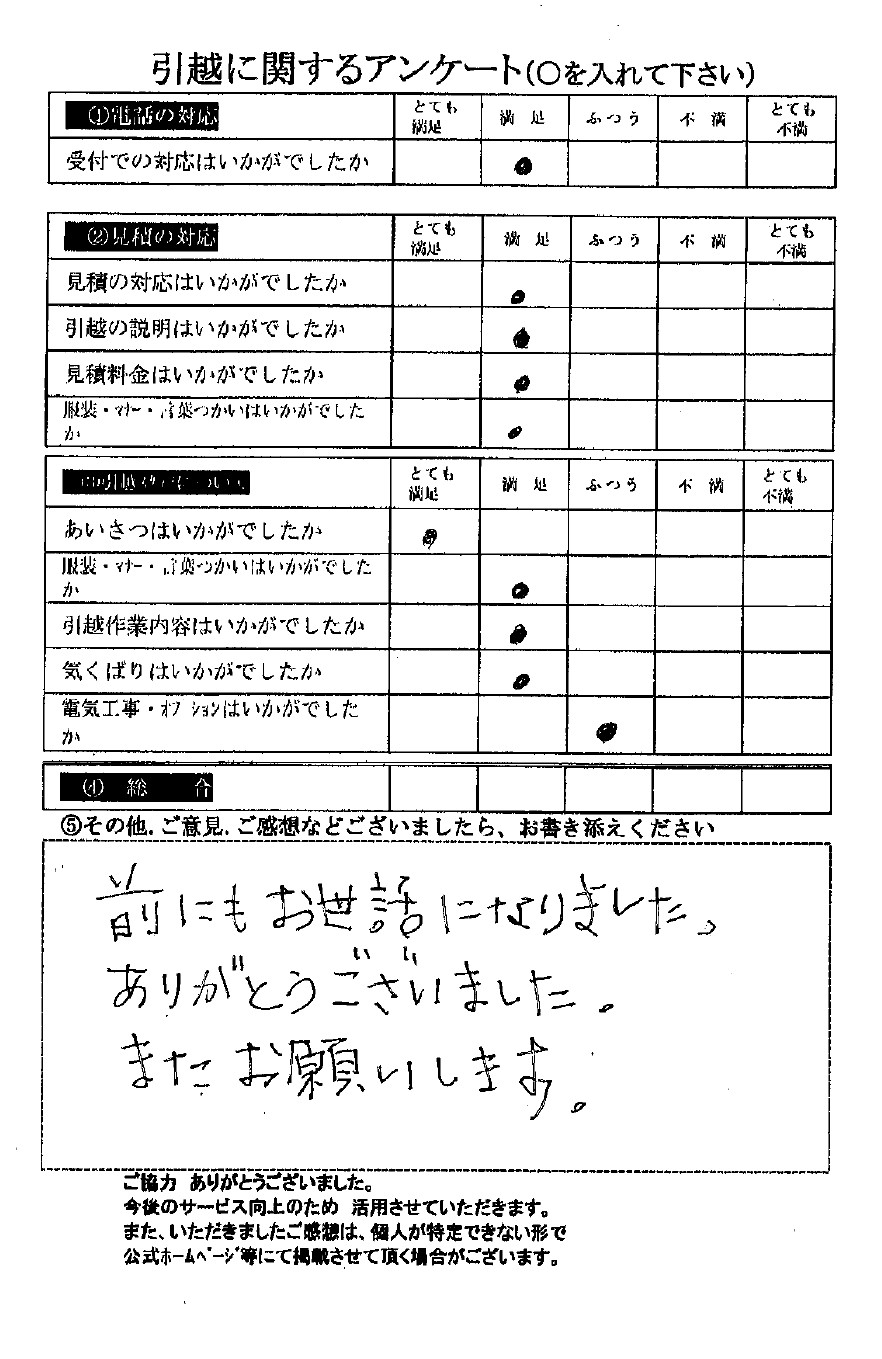 引越に関するアンケート(○を入れて下さい)
①電話の対応 とても満足 満足 ふつう 不満 とても不満
受付での対応はいかがでしたか
②見積の対応 とても満足 満足 ふつう 不満 とても不満
見積の対応はいかがでしたか
引越の説明はいかがでしたか
見積料金はいかがでしたか
服装・マナー・言葉つかいはいかがでした
か
引越 について とても満足 満足 ふつう 不満 とても不満
あいさつはいかがでしたか
服装・マナー・言葉つかいはいかがでした
か
引越作業内容はいかがでしたか
気くばりはいかがでしたか
電気工事・オプションはいかがでした
か
④ 総 合
⑤その他.ご意見.ご感想などございましたら、お書き添えください
前にもお世話になりました。
ありがとうございました。
またお願いします。
ご協力 ありがとうございました。
今後のサービス向上のため 活用させていただきます。
また、いただきましたご感想は、個人が特定できない形で
公式ホームページ等にて掲載させて頂く場合がございます。